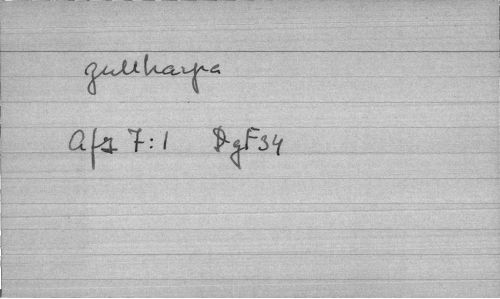 gullharpa
Afz 7:1 DgF34